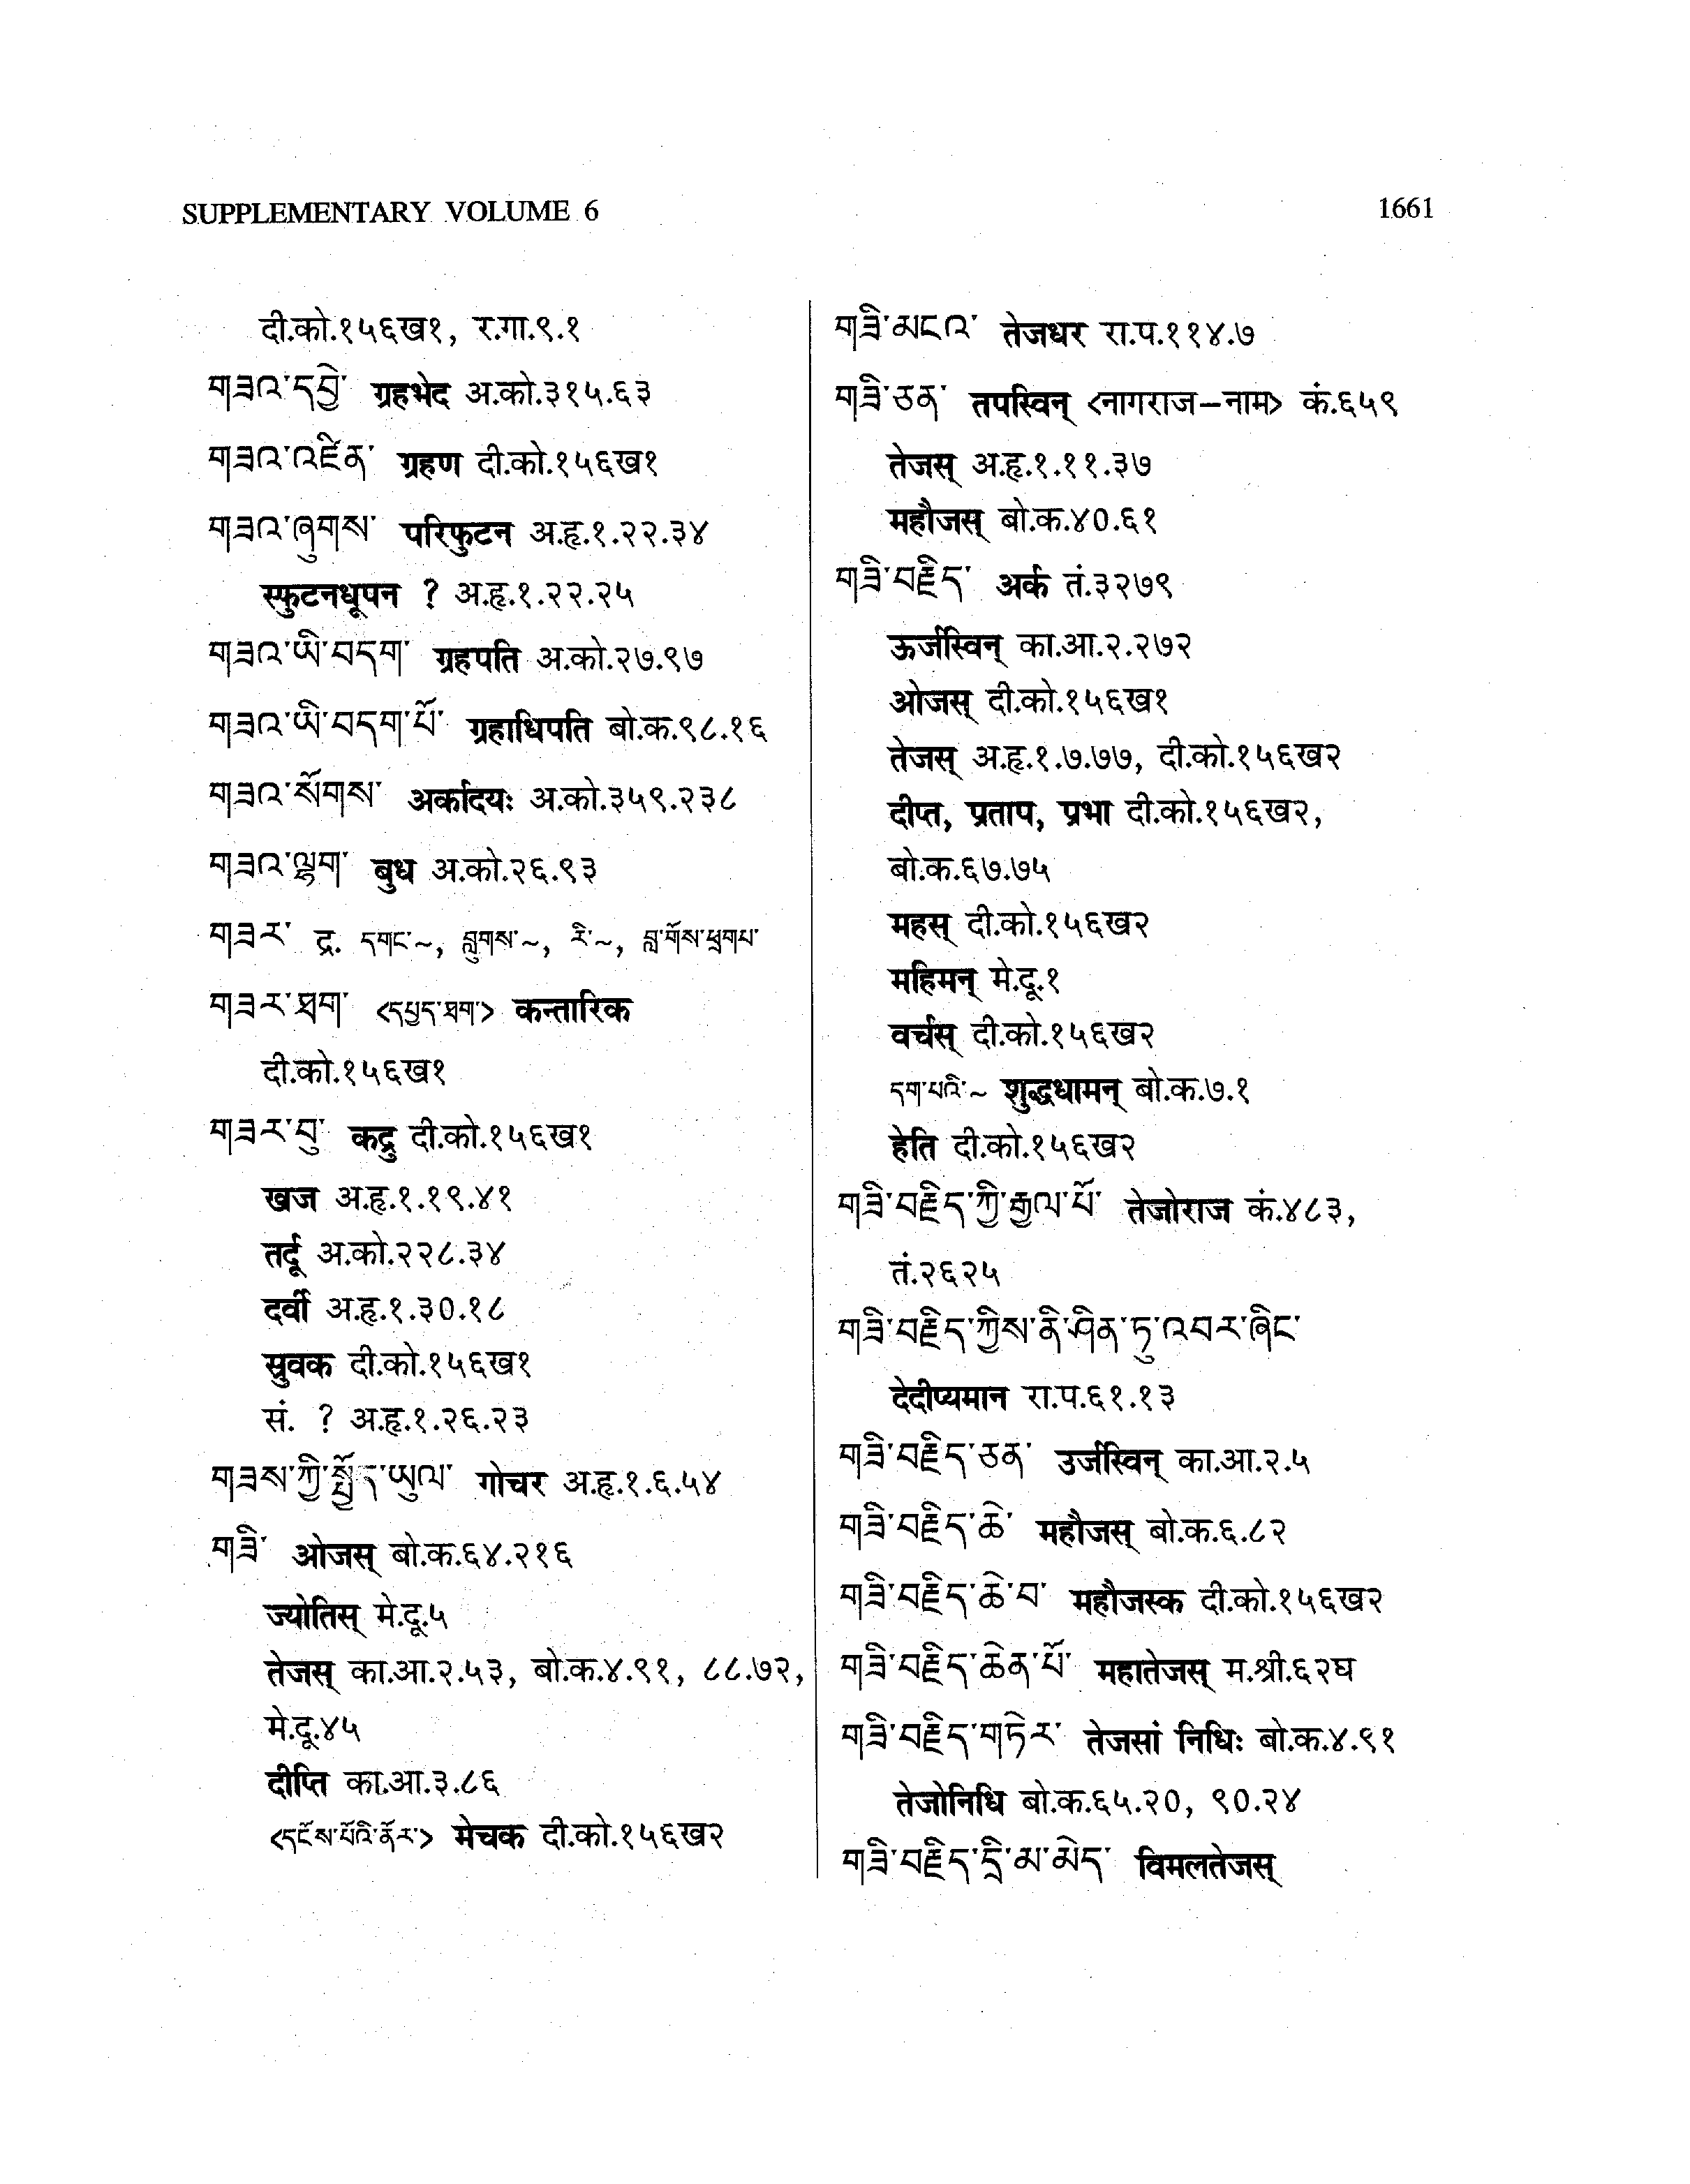 SUPPLEMENTARY VOLUME 6
1661
दी.को.१५६ख१, र.गा.९.१
གཟའ་དབྱེ་ ग्रहभेद अ.को.३१५.६३
གཟའ་འཛིན་ ग्रहण दी.को.१५६ख१
གཟའ་ཞུགས་ परिफुटन अ.हृ.१.२२.३४
स्फुटनधूपन ? अ.हृ.१.२२.२५
གཟའ་ཡི་བདག་ ग्रहपति अ.को.२७.९७
གཟའ་ཡི་བདག་པོ་ ग्रहाधिपति बो.क.९८.१६
གཟའ་སོགས་ अर्कादयः अ.को.३५९.२३८
གཟའ་ལྷག་ बुध अ.को.२६.९३
གཟར་ द्र. དགང་~, བླུགས་~, རི་~, བླ་གོས་ཕྲག་པ་
གཟར་ཐག་ <དཔྱད་ཐག་> कन्तारिक
दी.को.१५६ख१
གཟར་བུ་ कद्रु दी.को.१५६ख१
खज अ.हृ.१.१९.४१
तर्दू अ.को.२२८.३४
दर्वी अ.हृ.१.३०.१८
स्रुवक दी.को.१५६ख१
सं. ? अ.हृ.१.२६.२३
གཟས་ཀྱི་སྤྱོད་ཡུལ་ गोचर अ.हृ.१.६.५४
གཟི་ ओजस् बो.क.६४.२१६
ज्योतिस् मे.दू.५
तेजस् का.आ.२.५३, बो.क.४.९१, ८८.७२,
मे.दू.४५
दीप्ति का.आ.३.८६
<དངོས་པོའི་ནོར་> मेचक दी.को.१५६ख२
གཟི་མངའ་ तेजधर रा.प.११४.७
གཟི་ཅན་ तपस्विन् <नागराज-नाम> कं.६५९
तेजस् अ.हृ.१.११.३७
महौजस् बो.क.४०.६१
གཟི་བརྗིད་ अर्क तं.३२७९
ऊर्जस्विन् का.आ.२.२७२
ओजस् दी.को.१५६ख१
तेजस् अ.हृ.१.७.७७, दी.को.१५६ख२
दीप्त, प्रताप, प्रभा दी.को.१५६ख२,
बो.क.६७.७५
महस् दी.को.१५६ख२
महिमन् मे.दू.१
वर्चस् दी.को.१५६ख२
དག་པའི་~ शुद्धधामन् बो.क.७.१
हेति दी.को.१५६ख२
གཟི་བརྗིད་ཀྱི་རྒྱལ་པོ་ तेजोराज कं.४८३,
तं.२६२५
གཟི་བརྗིད་ཀྱིས་ནི་ཤིན་ཏུ་འབར་ཞིང་
देदीप्यमान रा.प.६१.१३
གཟི་བརྗིད་ཅན་ उर्जस्विन् का.आ.२.५
གཟི་བརྗིད་ཆེ་ महौजस् बो.क.६.८२
གཟི་བརྗིད་ཆེ་བ་ महौजस्क दी.को.१५६ख२
གཟི་བརྗིད་ཆེན་པོ་ महातेजस् म.श्री.६२घ
གཟི་བརྗིད་གཏེར་ तेजसां निधिः बो.क.४.९१
तेजोनिधि बो.क.६५.२०, ९०.२४
གཟི་བརྗིད་དྲི་མ་མེད་ विमलतेजस्